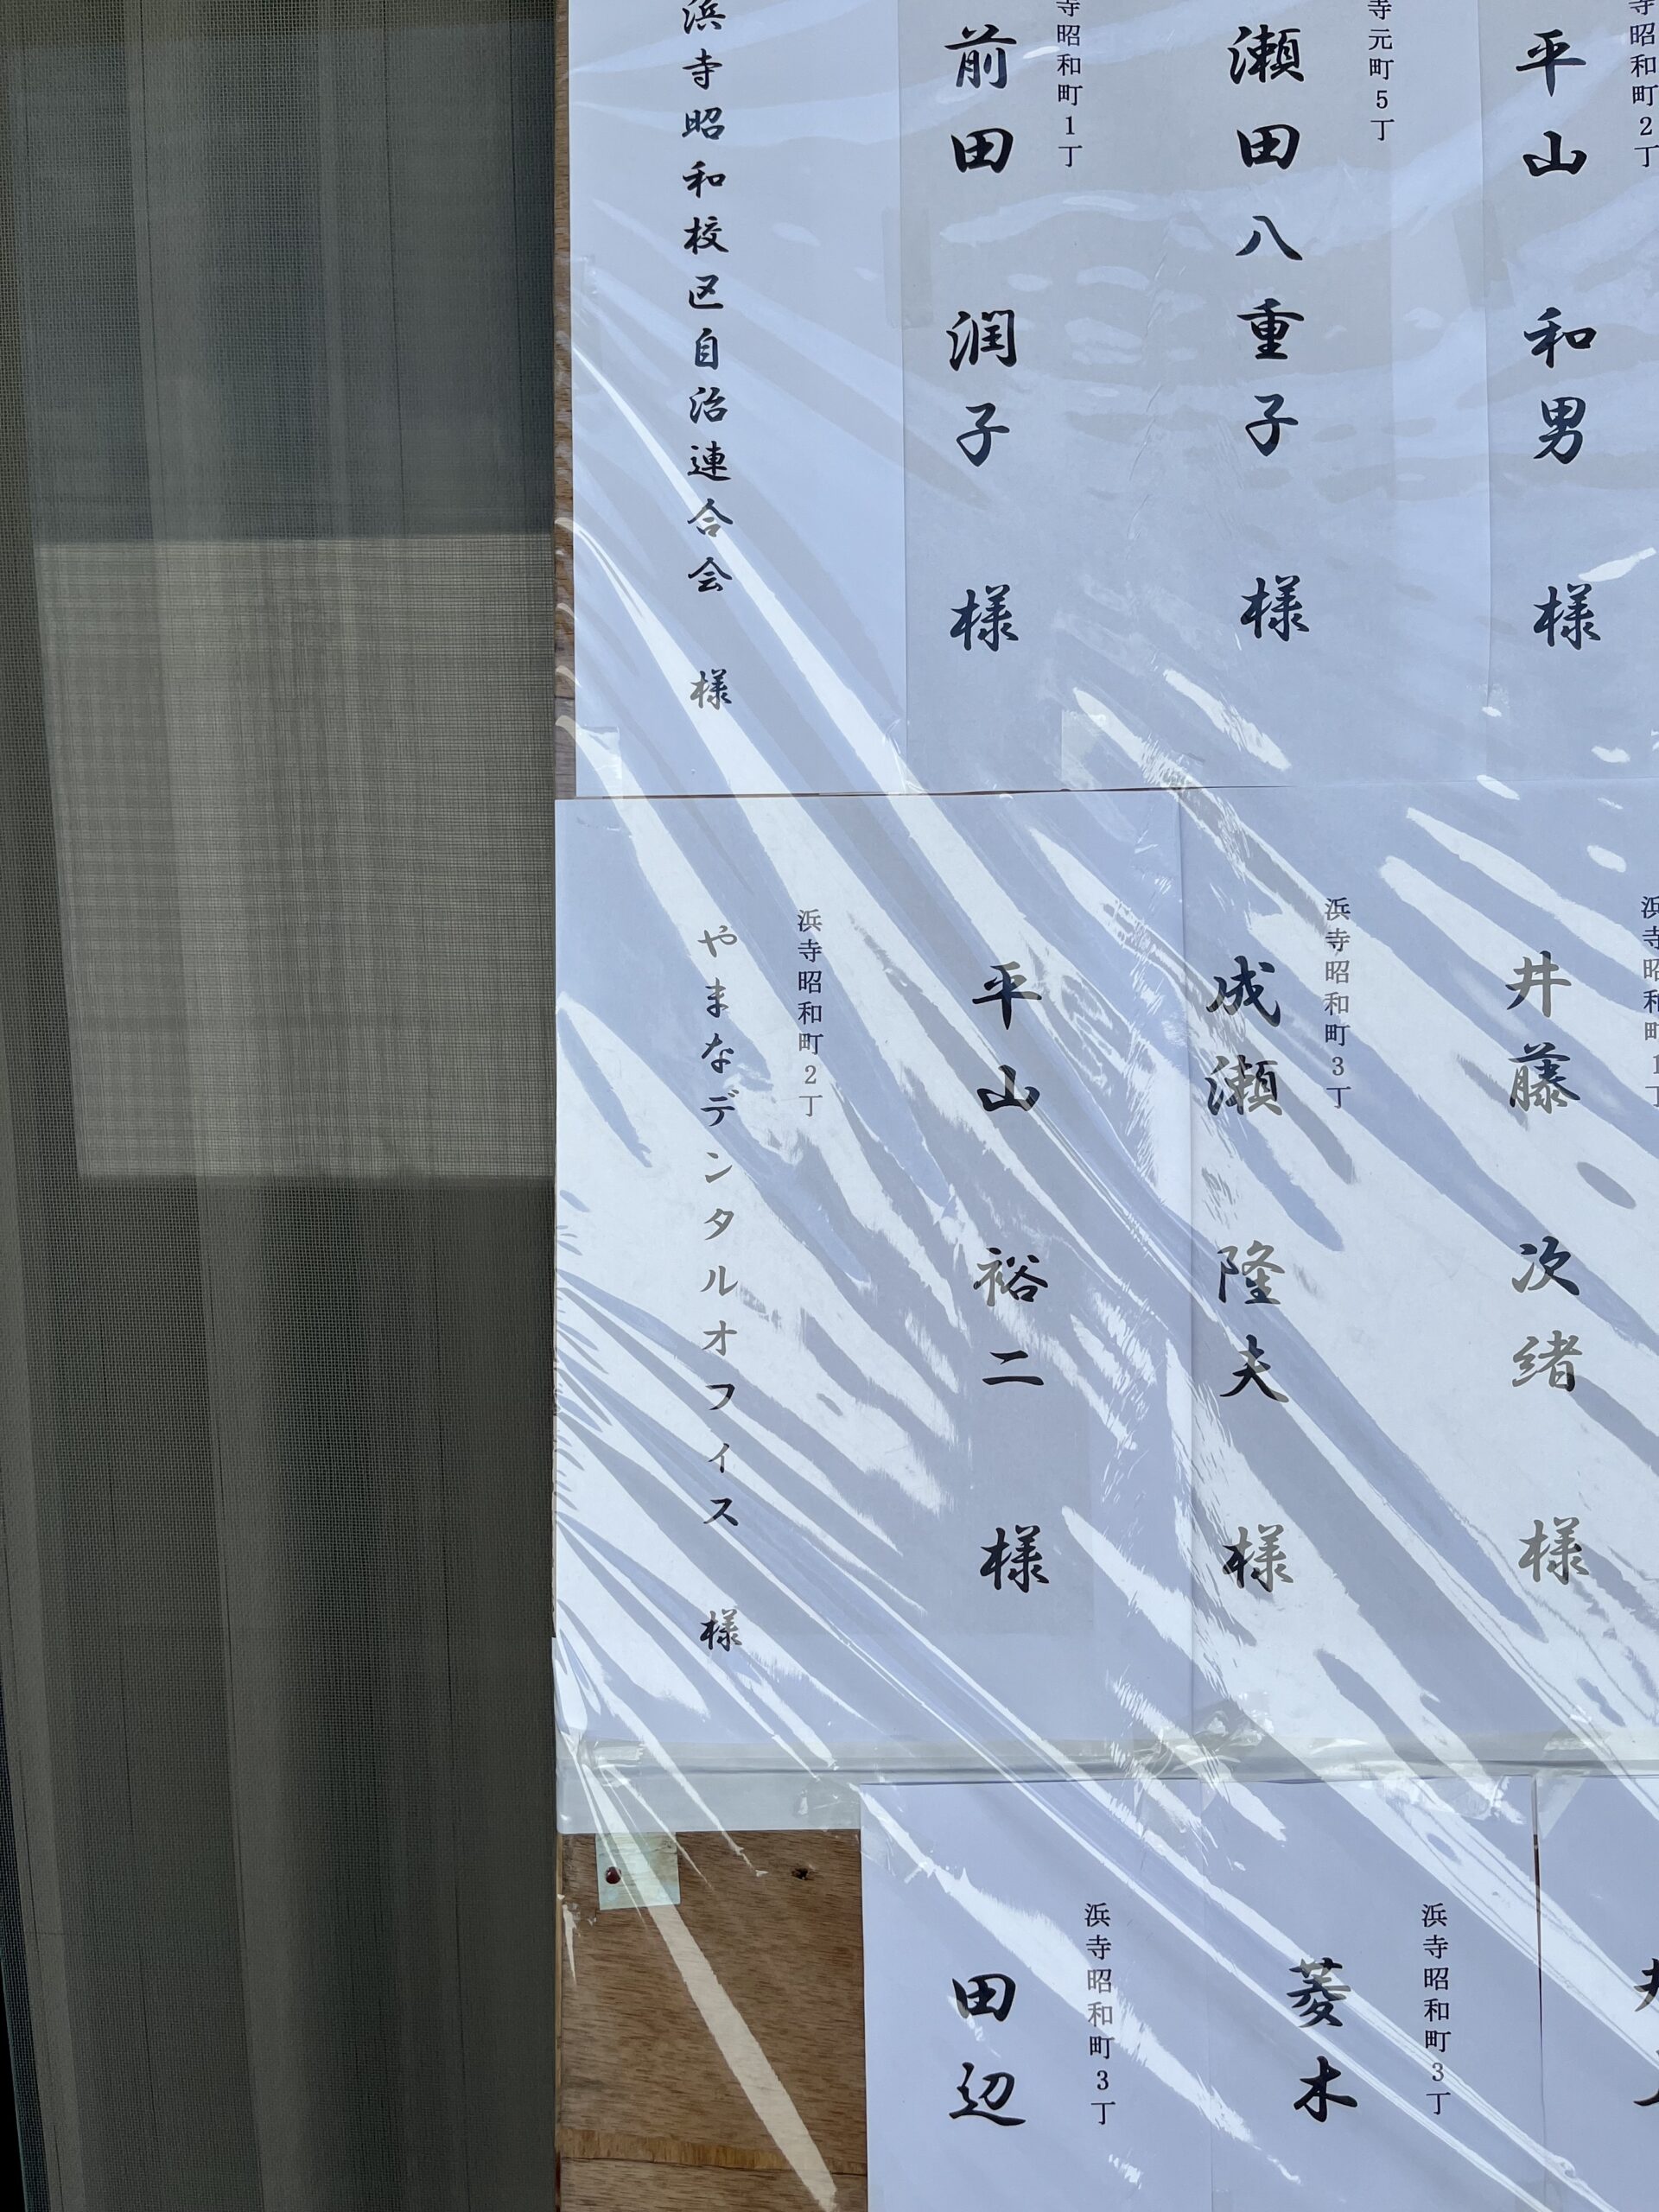 寺昭和町2丁
平山 和男 様
寺元町5丁
瀬田八重子 様
寺昭和町1丁
前田 潤子 様
浜寺昭和校区自治連合会 様
浜寺昭和町1丁
井藤 次緒 様
浜寺昭和町3丁
成瀬 隆夫 様
平山 裕二 様
浜寺昭和町2丁
やまなデンタルオフィス 様
浜寺昭和町3丁
菱木
浜寺昭和町3丁
田辺